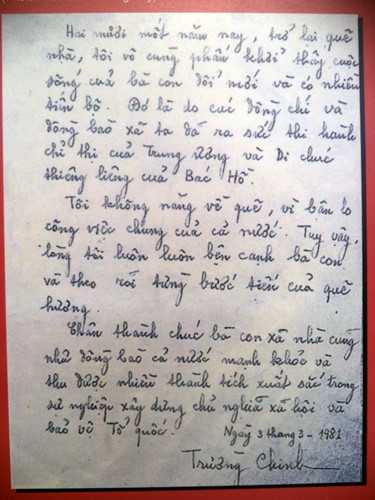 Hai mươi mốt năm nay, trở lại quê
nhà, tôi vô cùng phấn khởi thấy cuộc
sống của bà con đổi mới và có nhiều
tiến bộ. Đó là do các đồng chí và
đồng bào xã ta đã ra sức thi hành
chỉ thị của Trung ương và Di chúc
thiêng liêng của Bác Hồ.
Tôi không năng về quê, vì bận lo
công việc chung của cả nước. Tuy vậy,
lòng tôi luôn luôn bên cạnh bà con
và theo rõi từng bước tiến của quê
hương.
Chân thành chúc bà con xã nhà cũng
như đồng bào cả nước mạnh khỏe và
thu được nhiều thành tích xuất sắc trong
sự nghiệp xây dựng chủ nghĩa xã hội và
bảo vệ Tổ quốc.
Ngày 3 tháng 3 - 1981
Trường Chinh